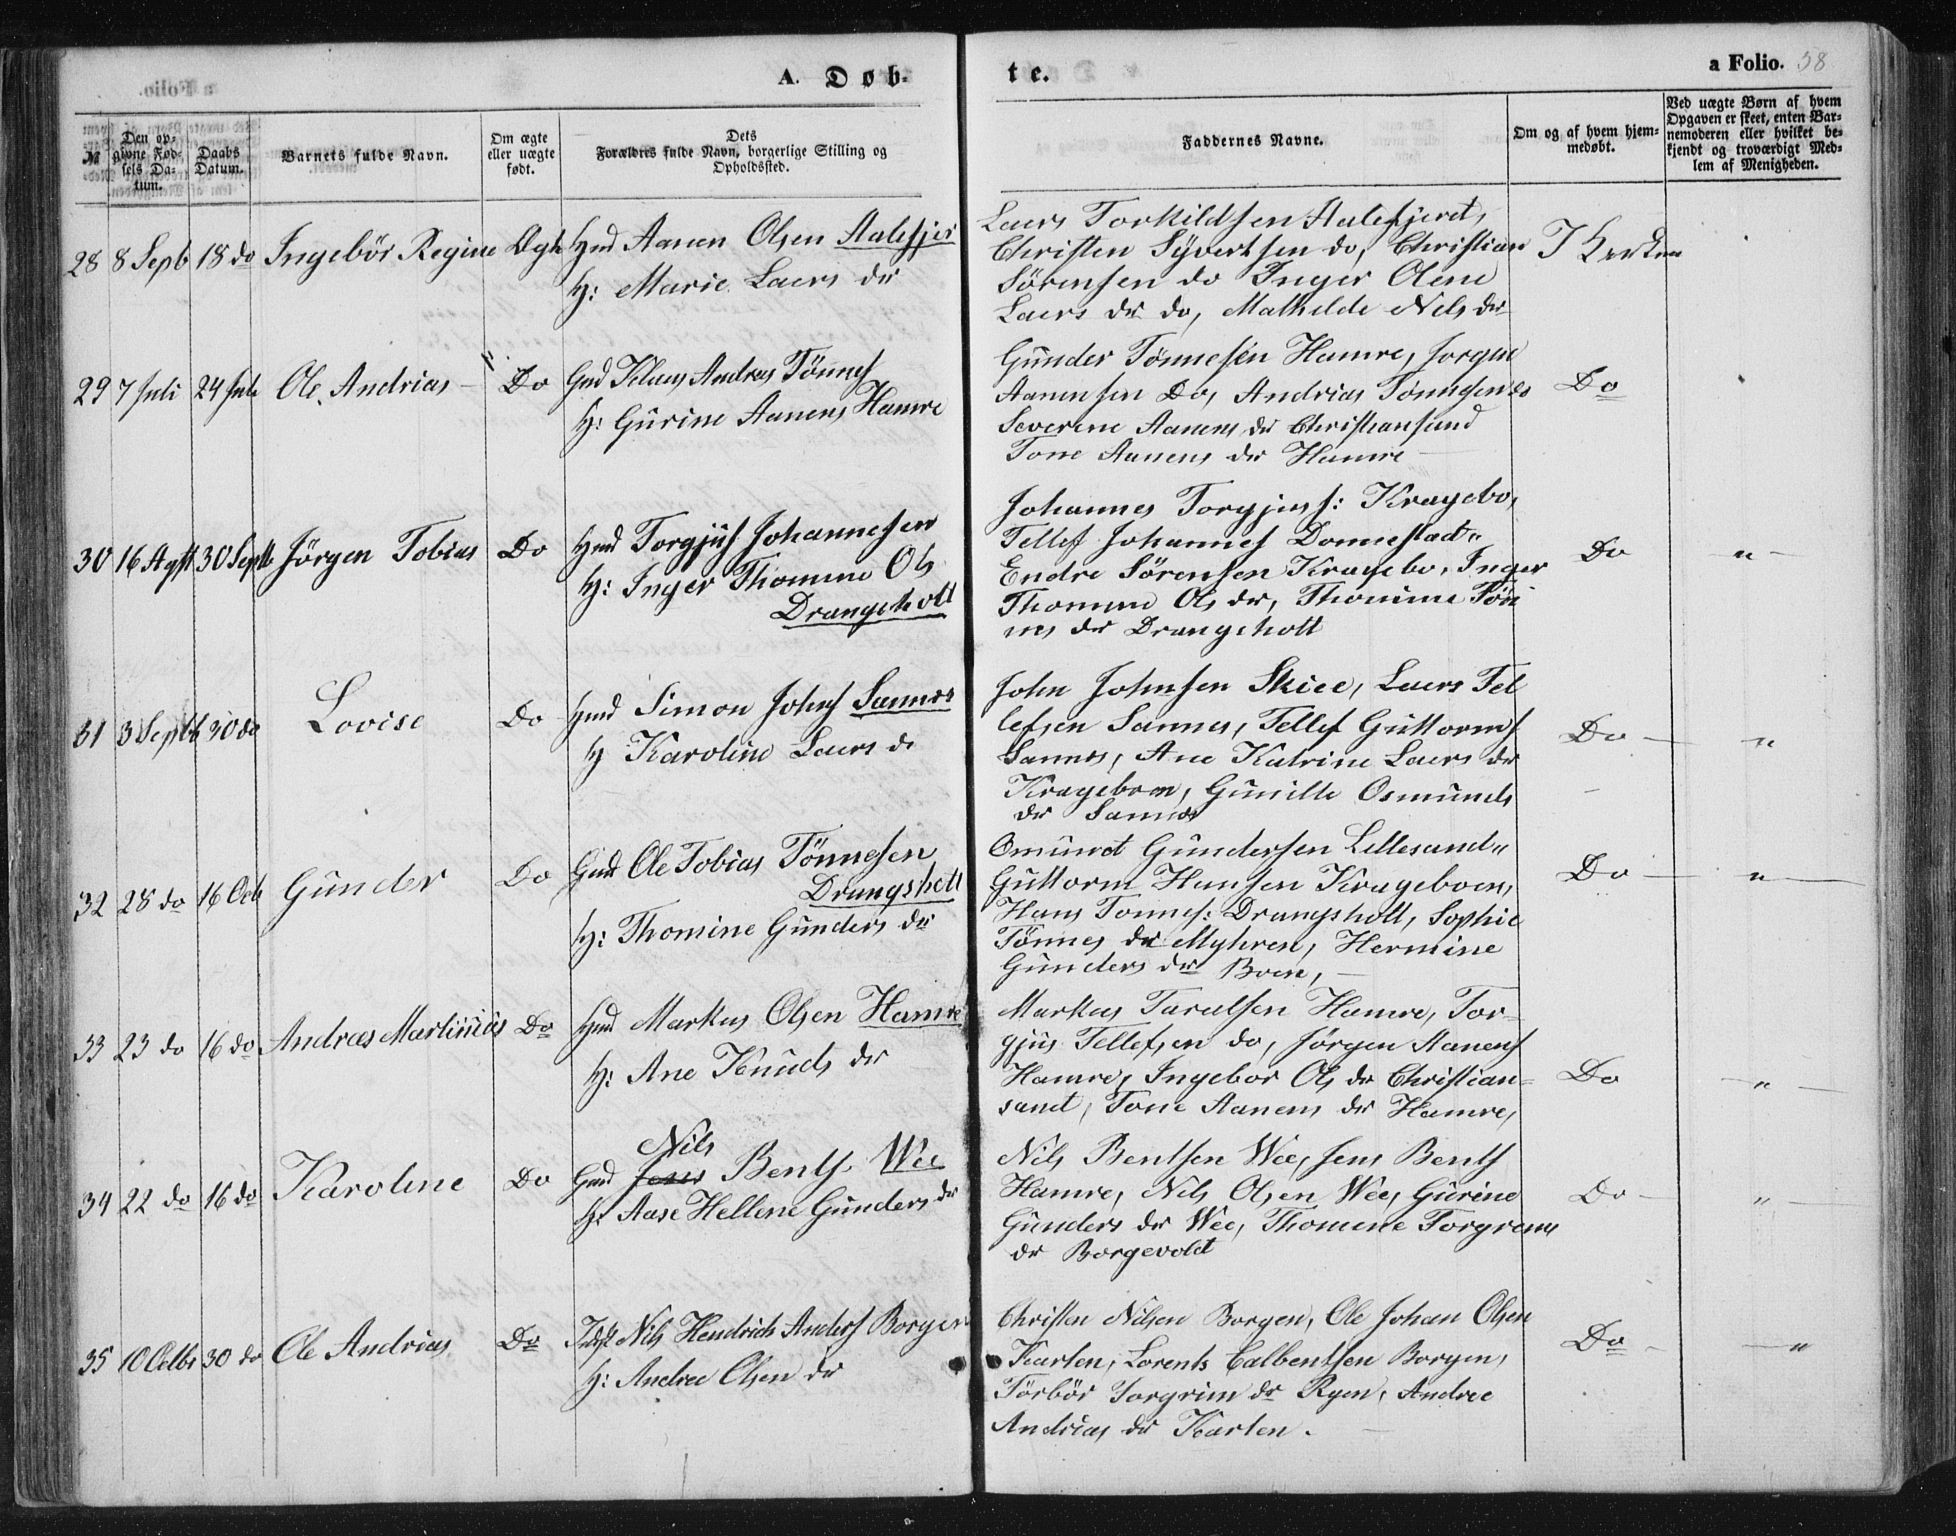 A. Døb-
te.
a Folio. 58
№
Den op-
givne Fød-
sels Da-
tum.
Daabs
Datum.
Barnets fulde Navn.
Om ægte
eller uægte
født.
Dets
Forældres fulde Navn, borgerlige Stilling og
Opholdssted.
Faddernes Navne.
Om og af hvem hjem-
medøbt.
Ved uægte Børn af hvem
Opgaven er skeet, enten Bar-
nemoderen eller hvilket be-
kjendt og troværdigt Med-
lem af Menigheden.
28 8 Septb 18 do Ingebör Regine Ægte Gmd Aanen Olsen Aalefjer
H: Marie Laers dr
Laers Torkildsen Aalefjeret,
Christen Syvertsen do, Christian
Sørensen do Inger Olene
Laers dr do, Mathilde Nels dr
I Kirken
29 7 Juli 24 Juli Ole Andrias Do Gmd Klaus Andreas Tönnes
H: Gurine Aanens Hamre
Gunder Tønnesen Hamre, Jorgen
Aanensen Do, Andrias Tönnesen do
Severine Aanens dr Christiansand
Tone Aanens dr Hamre
Do
30 16 Agst 30 Septb Jörgen Tobias Do Gmd Torgjus Johannesen
H: Inger Thomine Ols
Drangeholt
Johannes Torgjus: Kragebo,
Tellef Johannes Donnestad"
Endre Sörensen Kragebo, Inger
Thomine Ols dr, Thomine Tön
nes dr Drangeholt
Do "
31 3 Septb 30 do Lovise Do Gmd Simon Johns Sannes
H Karoline Laers d
John Johnsen Skiee, Laers Tel
lefsen Sannes, Tellef Guttorms
Sannes, Ane Katrine Laers dr
Krageboen, Gunille Osmunds
dr Sannes
Do "
32 28 do 16 Octb Gunder Do Gmd Ole Tobias Tönnesen
Drangsholt
H: Thomine Gunders dr
Omund Gundersen Lillesand"
Guttorm Hansen Krageboen,
Hans Tonnes: Drangsholt, Sophie
Tönnes dr Myhren, Hermine
Gunders dr Boen,
Do "
33 23 do 16 do Andreas Martinius Do Gmd Markus Olsen Hamre
H: Ane Knuds dr
Markus Taralsen Hamre, Tor-
gjus Tellefsen do, Jörgen Aanens
Hamre, Ingebor Ols dr Christian-
sand, Tone Aanens dr Hamre,
Do "
34 22 do 16 do Karoline Do Gmd Jens Nils Bents. Wee
H: Aase Hellene Gunders dr
Nils Bentsen Wee, Jens Bents
Hamre, Nils Olsen Wee, Gurine
Gunders dr Wee, Thomine Torgrems
dr Borgevolet
Do "
35 10 Octbr 30 do Ole Andrias Do Nils Hendrich Anders Borgen
H: Andrea Olsen dr
Christen Nilsen Borgen, Ole Johan Olsen
Karten, Lorents Calbentsen Borgen,
Törbör Torgrim dr Ryen, Andrea
Andrias dr Karten.
Do "